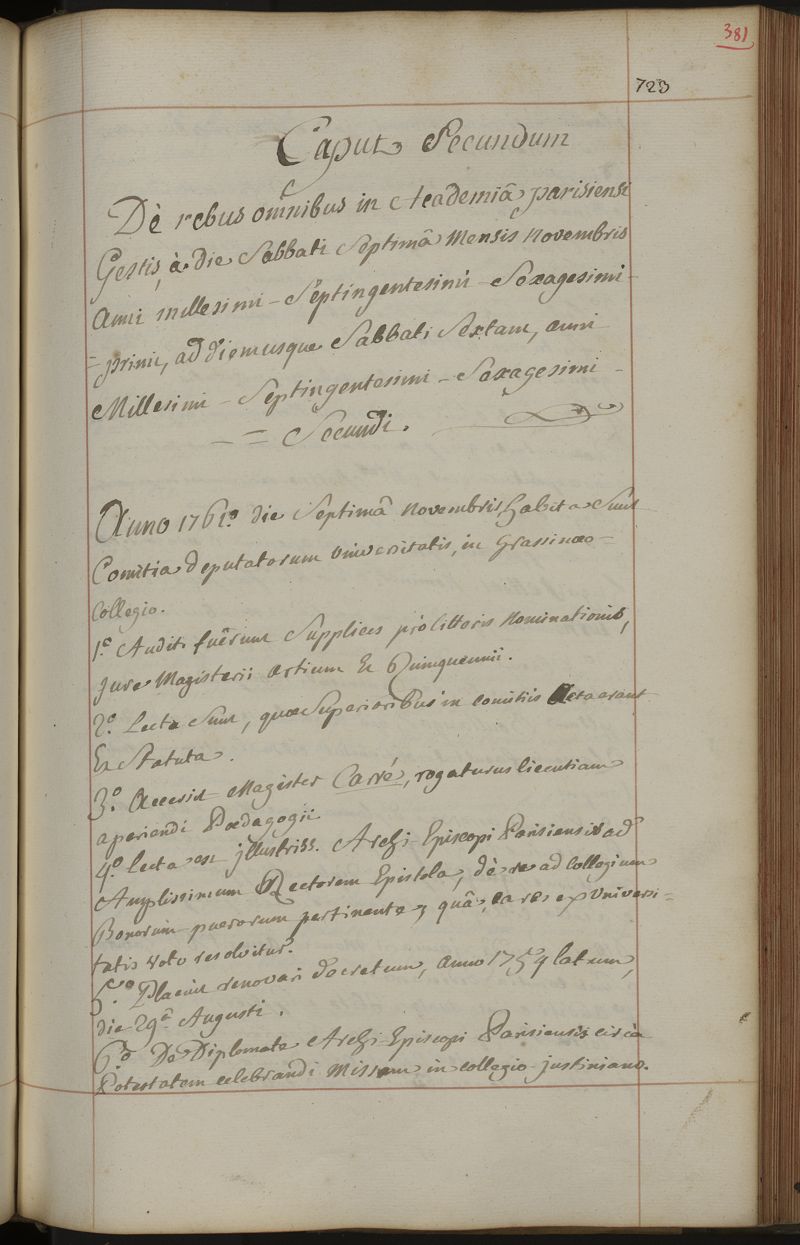 381
723
Caput Secundum
De rebus omnibus in Academiâ parisiensi
Gestis, à die Sabbati Septimâ Mensis Novembris
Anni millesimi - Septingentesimi - Sexagesimi -
= primi, ad diemusque Sabbati Sextam, anni
Millesimi - Septingentesimi - Sexagesimi -
- = Secundi.
Anno 1761.º die Septimâ Novembris, habita Sunt
Comitia deputatorum Universitatis, in Grassinæo -
Collegio.
1.º Auditi fuêrunt Supplices pro litteris Nominationis,
jure Magisterii artium Et Quinquennii.
2.º Lecta Sunt, quæ Superioribus in comitiis Acta erant
Et Statuta.
3.º Accessit Magister Carré, rogaturus licentiam
aperiendi Pædagogii
4.º lecta est jllustriss. Archi-Episcopi Parisiensis ad
Amplissimum Rectorem Epistola, dè re ad Collegium
Bonorum-puerorum pertinente; quâ, ea res ex Universi=
tatis voto resolvitur.
5.º Placuit renovari decretum, anno 1759 latum,
die 29ª Augusti.
6.º De Diplomate Archi-Episcopi Parisiensis circa
Potestatem celebrandi Missam in collegio justiniano.